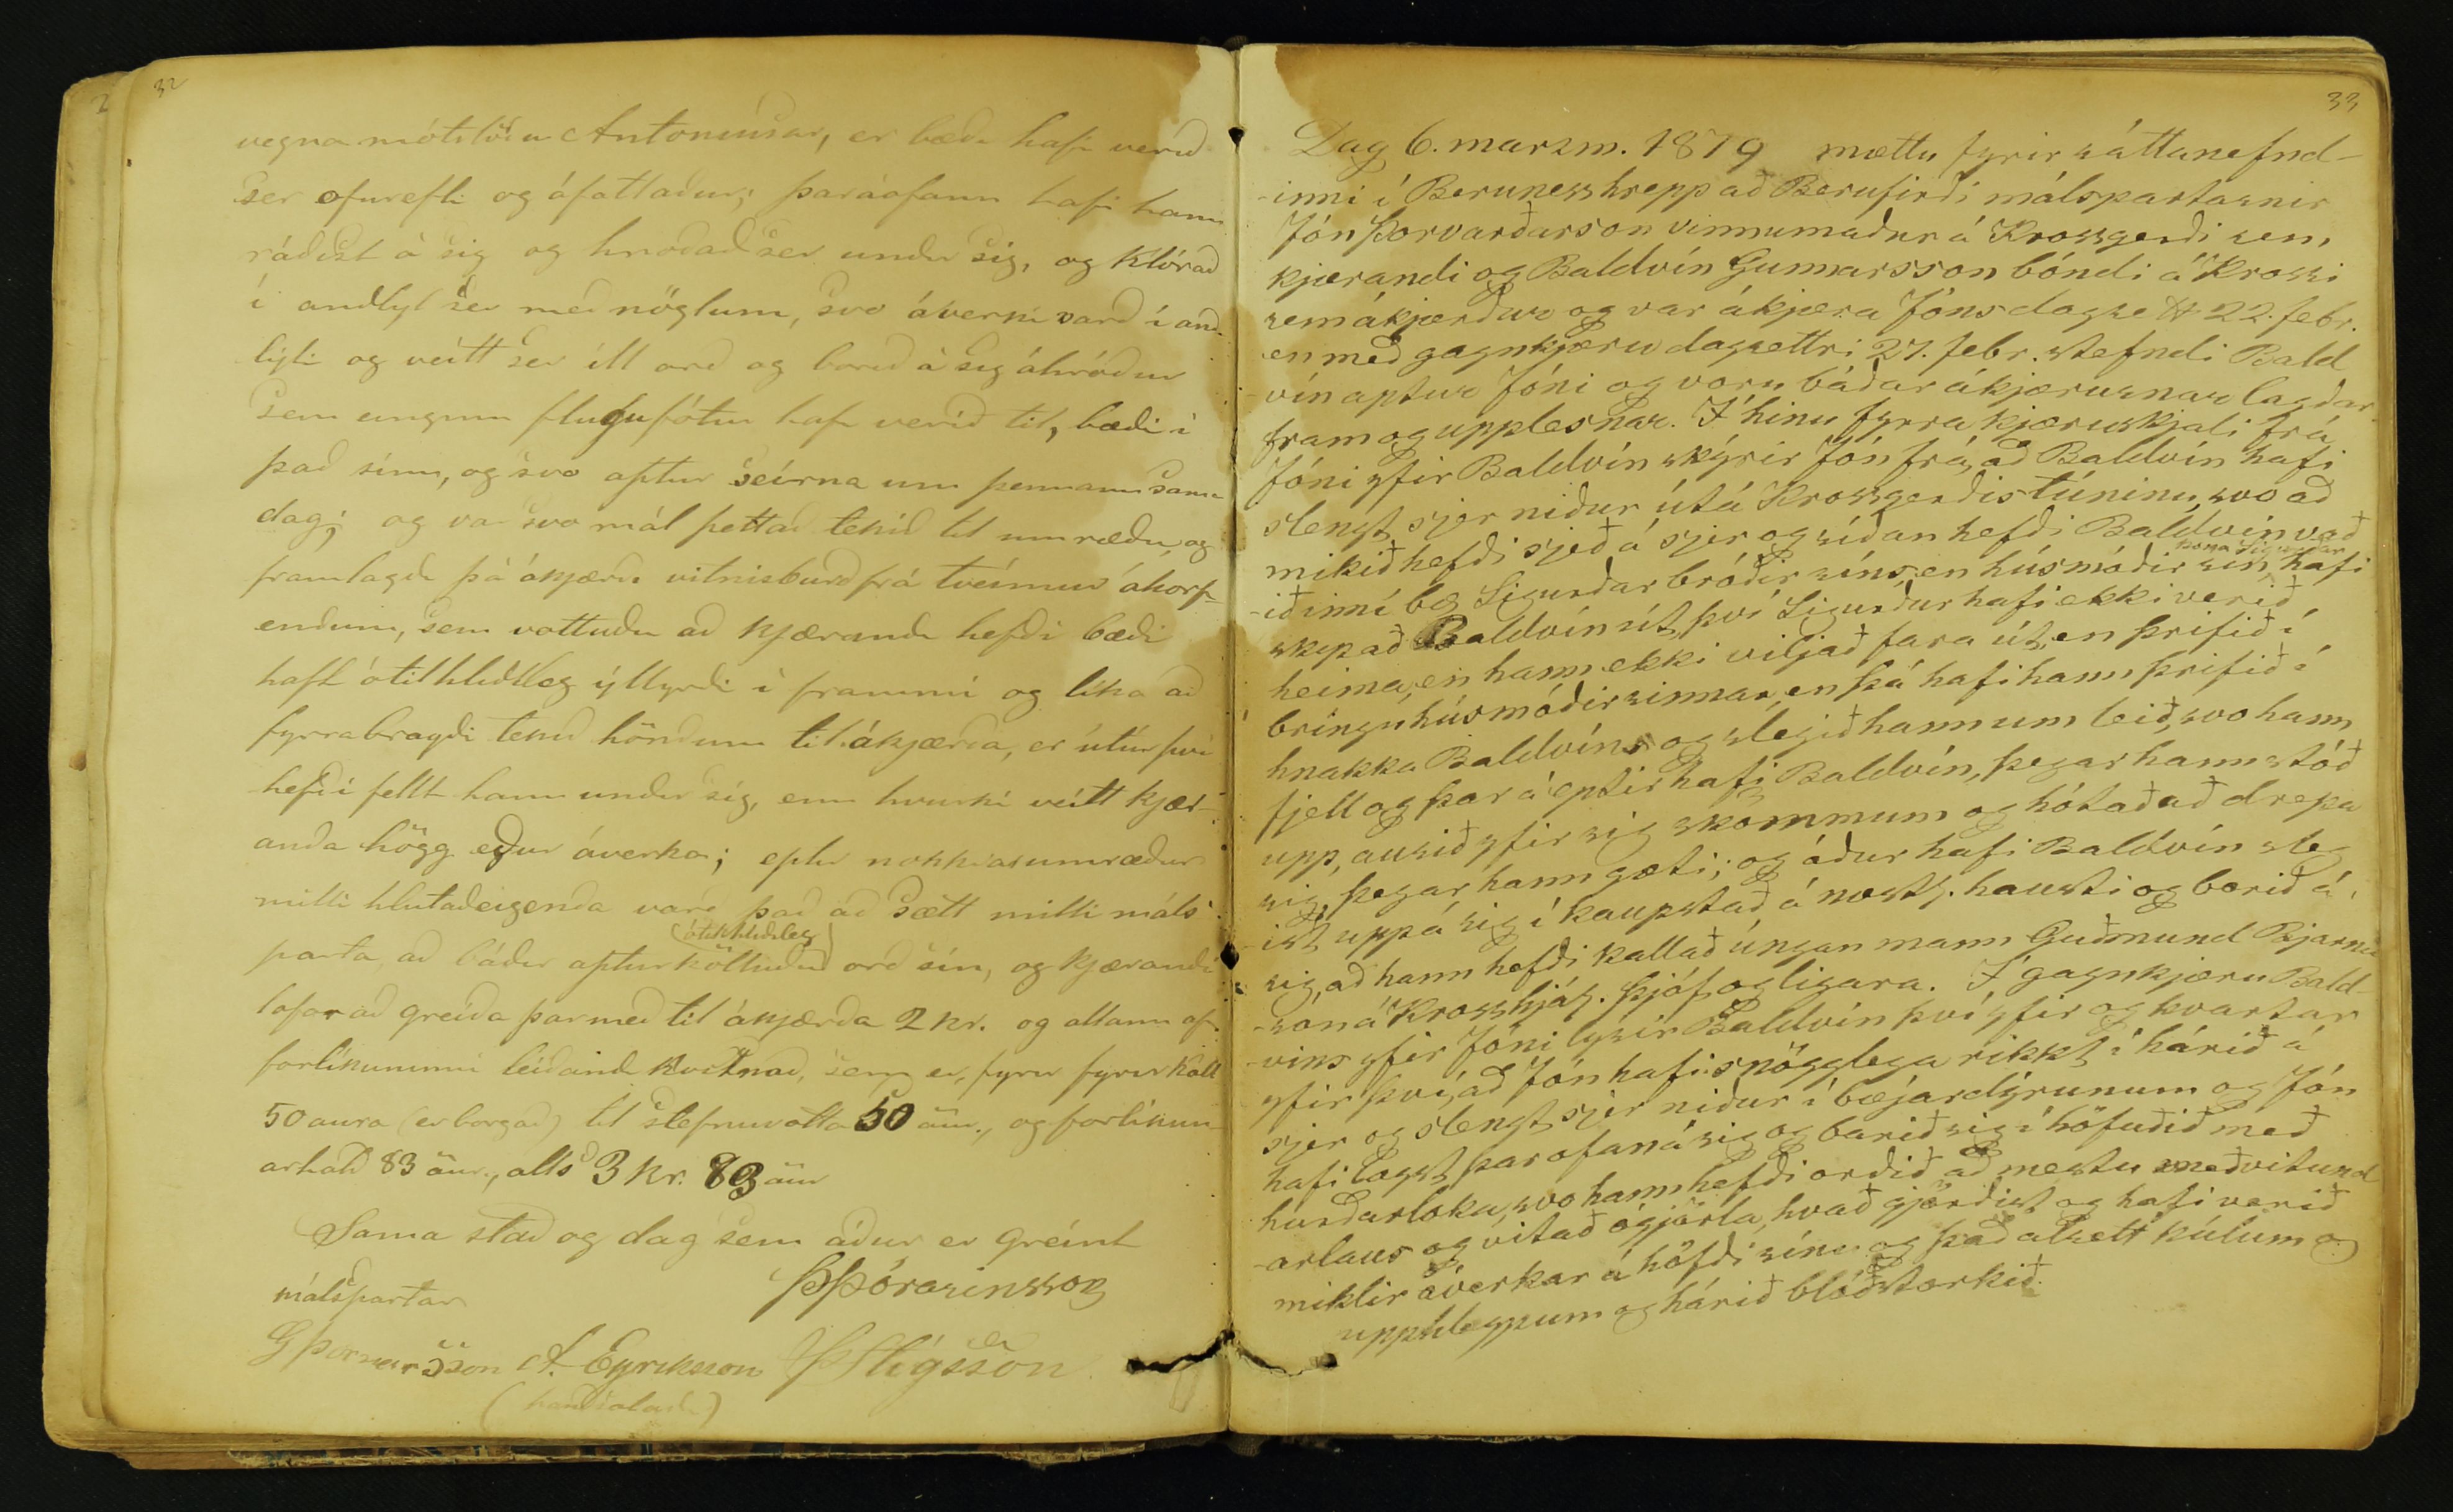 32
vegna mótstöðu Antoníusar, er bæði hafi verið
ser ofurefli og áfallaður; þaráofann hafi hann
ráðist á sig og hnoðað ser undir sig, og klórað
í andlyt ser með nöglum, svo áverki varð í and
lyti og veitt ser ill orð og borið á sig áhróður
sem einginn flugufótur hafi verið til, bæði i
það sinn, og svo aptur seirna um þennann sama
dag; og var svo mál þettað tekið til umræðu, og
framlagði þá ákjærði vitnisburð frá tveimur áhorf-
endum, sem vottuðu að kjærandi hefði bæði
haft ótilhliðileg illyrði í frammi og lika að
fyrrabragði tekið höndum til ákjærða, er útúr því
hefði fellt hann undir sig, enn hvurki veitt kjær-
anda högg eður áverka; eptir nokkrar umræður
milli hlutaðeigenda varð það að sætt milli máls-
(ótilhliðileg)
parta, að báðir apturkölluðu orð sín, og kjærandi
lofar að greiða þarmeð til ákjærða 2 kr. og allann af
forlikuninni leiðandi kostnað, sem er, fyrir fyrirkall
50 aura (er borgað) til stefnuvotta 50 aur., og forlikun-
arhald 83 aur., alls 3 kr. 83 aur
Sama stað og dag sem áður er greint
málspartar ÞÞórarinsson
G Þormarsson A. Eyriksson ÞStígsson
(handsalað)
33
Dag 6. marzm. 1879 mættu fyrir sáttanefnd-
-inni í Beruness hrepp að Berufirði málspartarnir
Jón Þorvarðarson vinnumaður á Krossgerði sem
kjærandi og Baldvín Gunnarsson bóndi á Krossi
sem ákjærður og var ákjæra Jóns dags. 22. febr.
en með gagnkjæru dagsettri 27. febr. stefndi Bald
vín aptur Jóni og voru báðar ákjærurnar lagðar
fram og upplesnar. Í hinu fyrra kjæruskjali frá
Jóni yfir Baldvín skýrir Jón frá, að Baldvín hafi
slengt sjer niður útá Krossgerðistúninu, svo að
mikið hefði sjeð á sjer og síðan hefði Baldvín vað
kona Sigurðar
-ið inní bæ Sigurðar bróðir síns, en húsmóðir sín, hafi
skipað Baldvín út, því Sigurður hafi ekki verið
heima, en hann ekki viljað fara út, en þrifið í
bringu húsmóðir sinnar, en þá hafi hann þrifið í
hnakka Baldvíns og slegið hann um leið, svo hann
fjell og þar á eptir hafi Baldvín, þegar hann stóð
upp, ausið yfir sig skömmum og hótað að drepa
sig, þegar hann gæti; og áður hafi Baldvín sleg
-ist uppá sig í kaupstað á næstl. hausti og borið á
sig, að hann hefði kallað úngan mann Guðmund Bjarna
-son á Krosshjál. þjóf og ligara. Í gagnkjæru Bald-
-vins yfir Jóni lýsir Baldvín því yfir og kvartar
yfir því, að Jón hafi snögglega rikkt í hárið á
sjer og slengt sjer niður í bæjardýrunum og Jón
hafi lagst þar ofaná sig og barið sig í höfuðið með
hurðarloku, svo hann hefði orðið að mestu meðvitund
-arlaus og vitað ógjörla, hvað gjörðist og hafi verið
miklir áverkar á höfði sínu og það alsett kúlum og
upphleypum og hárið blóðstorkið.